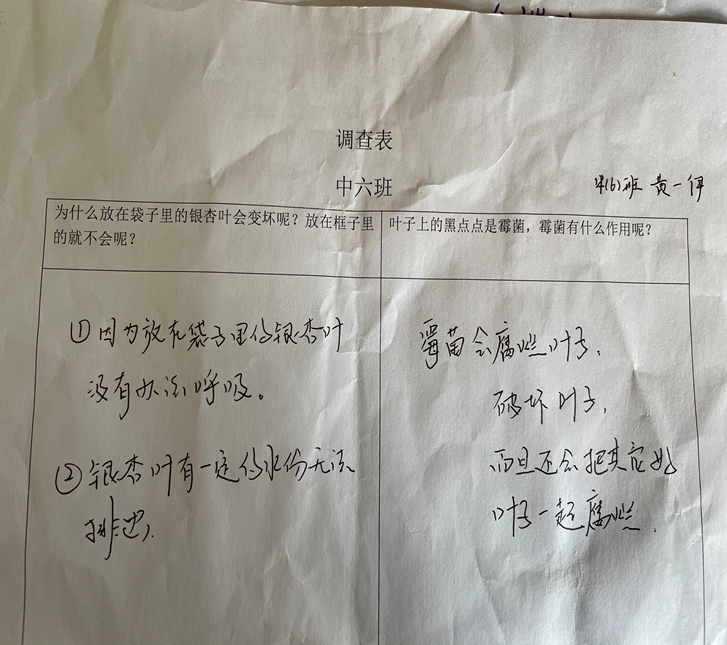 调查表
中六班
中(6)班 黄一伊
为什么放在袋子里的银杏叶会变坏呢？放在框子里
的就不会呢？
叶子上的黑点点是霉菌，霉菌有什么作用呢？
①因为放在袋子里的银杏叶
没有办法呼吸。
②银杏叶有一定的水份无法
排出。
霉菌会腐烂叶子，
破坏叶子，
而且还会把其它好
叶子一起腐烂.